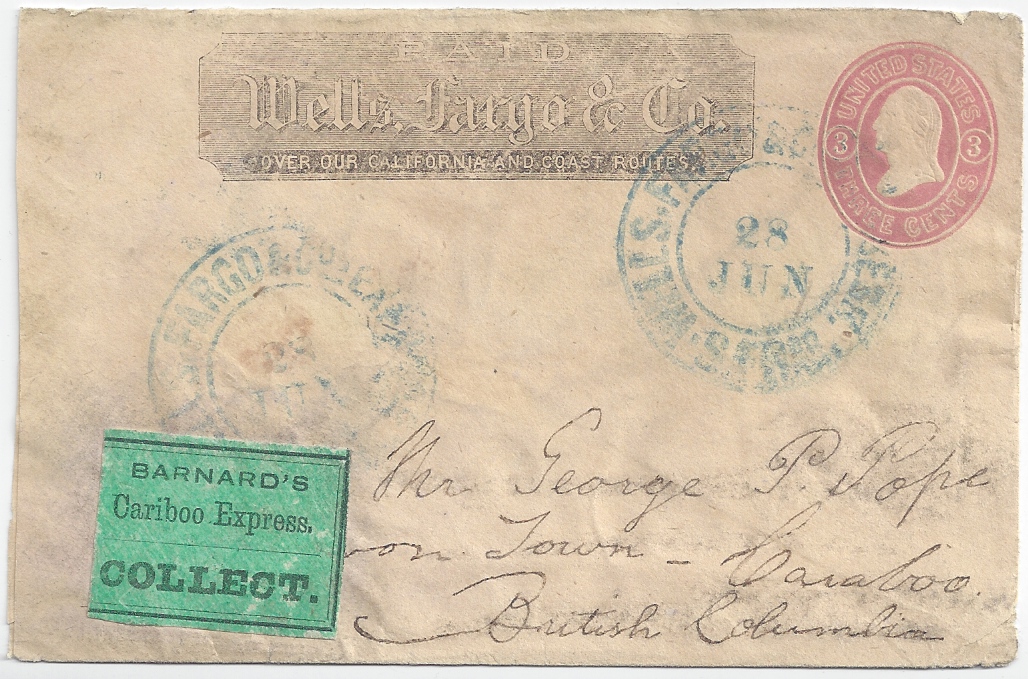 PAID
Wells, Fargo & Co.
OVER OUR CALIFORNIA AND COAST ROUTES.
UNITED STATES
3 3
THREE CENTS
28
JUN
FARGO & CO
BARNARD'S
Cariboo Express.
COLLECT.
Mr George P. Pope
Town - Caraboo.
British Columbia